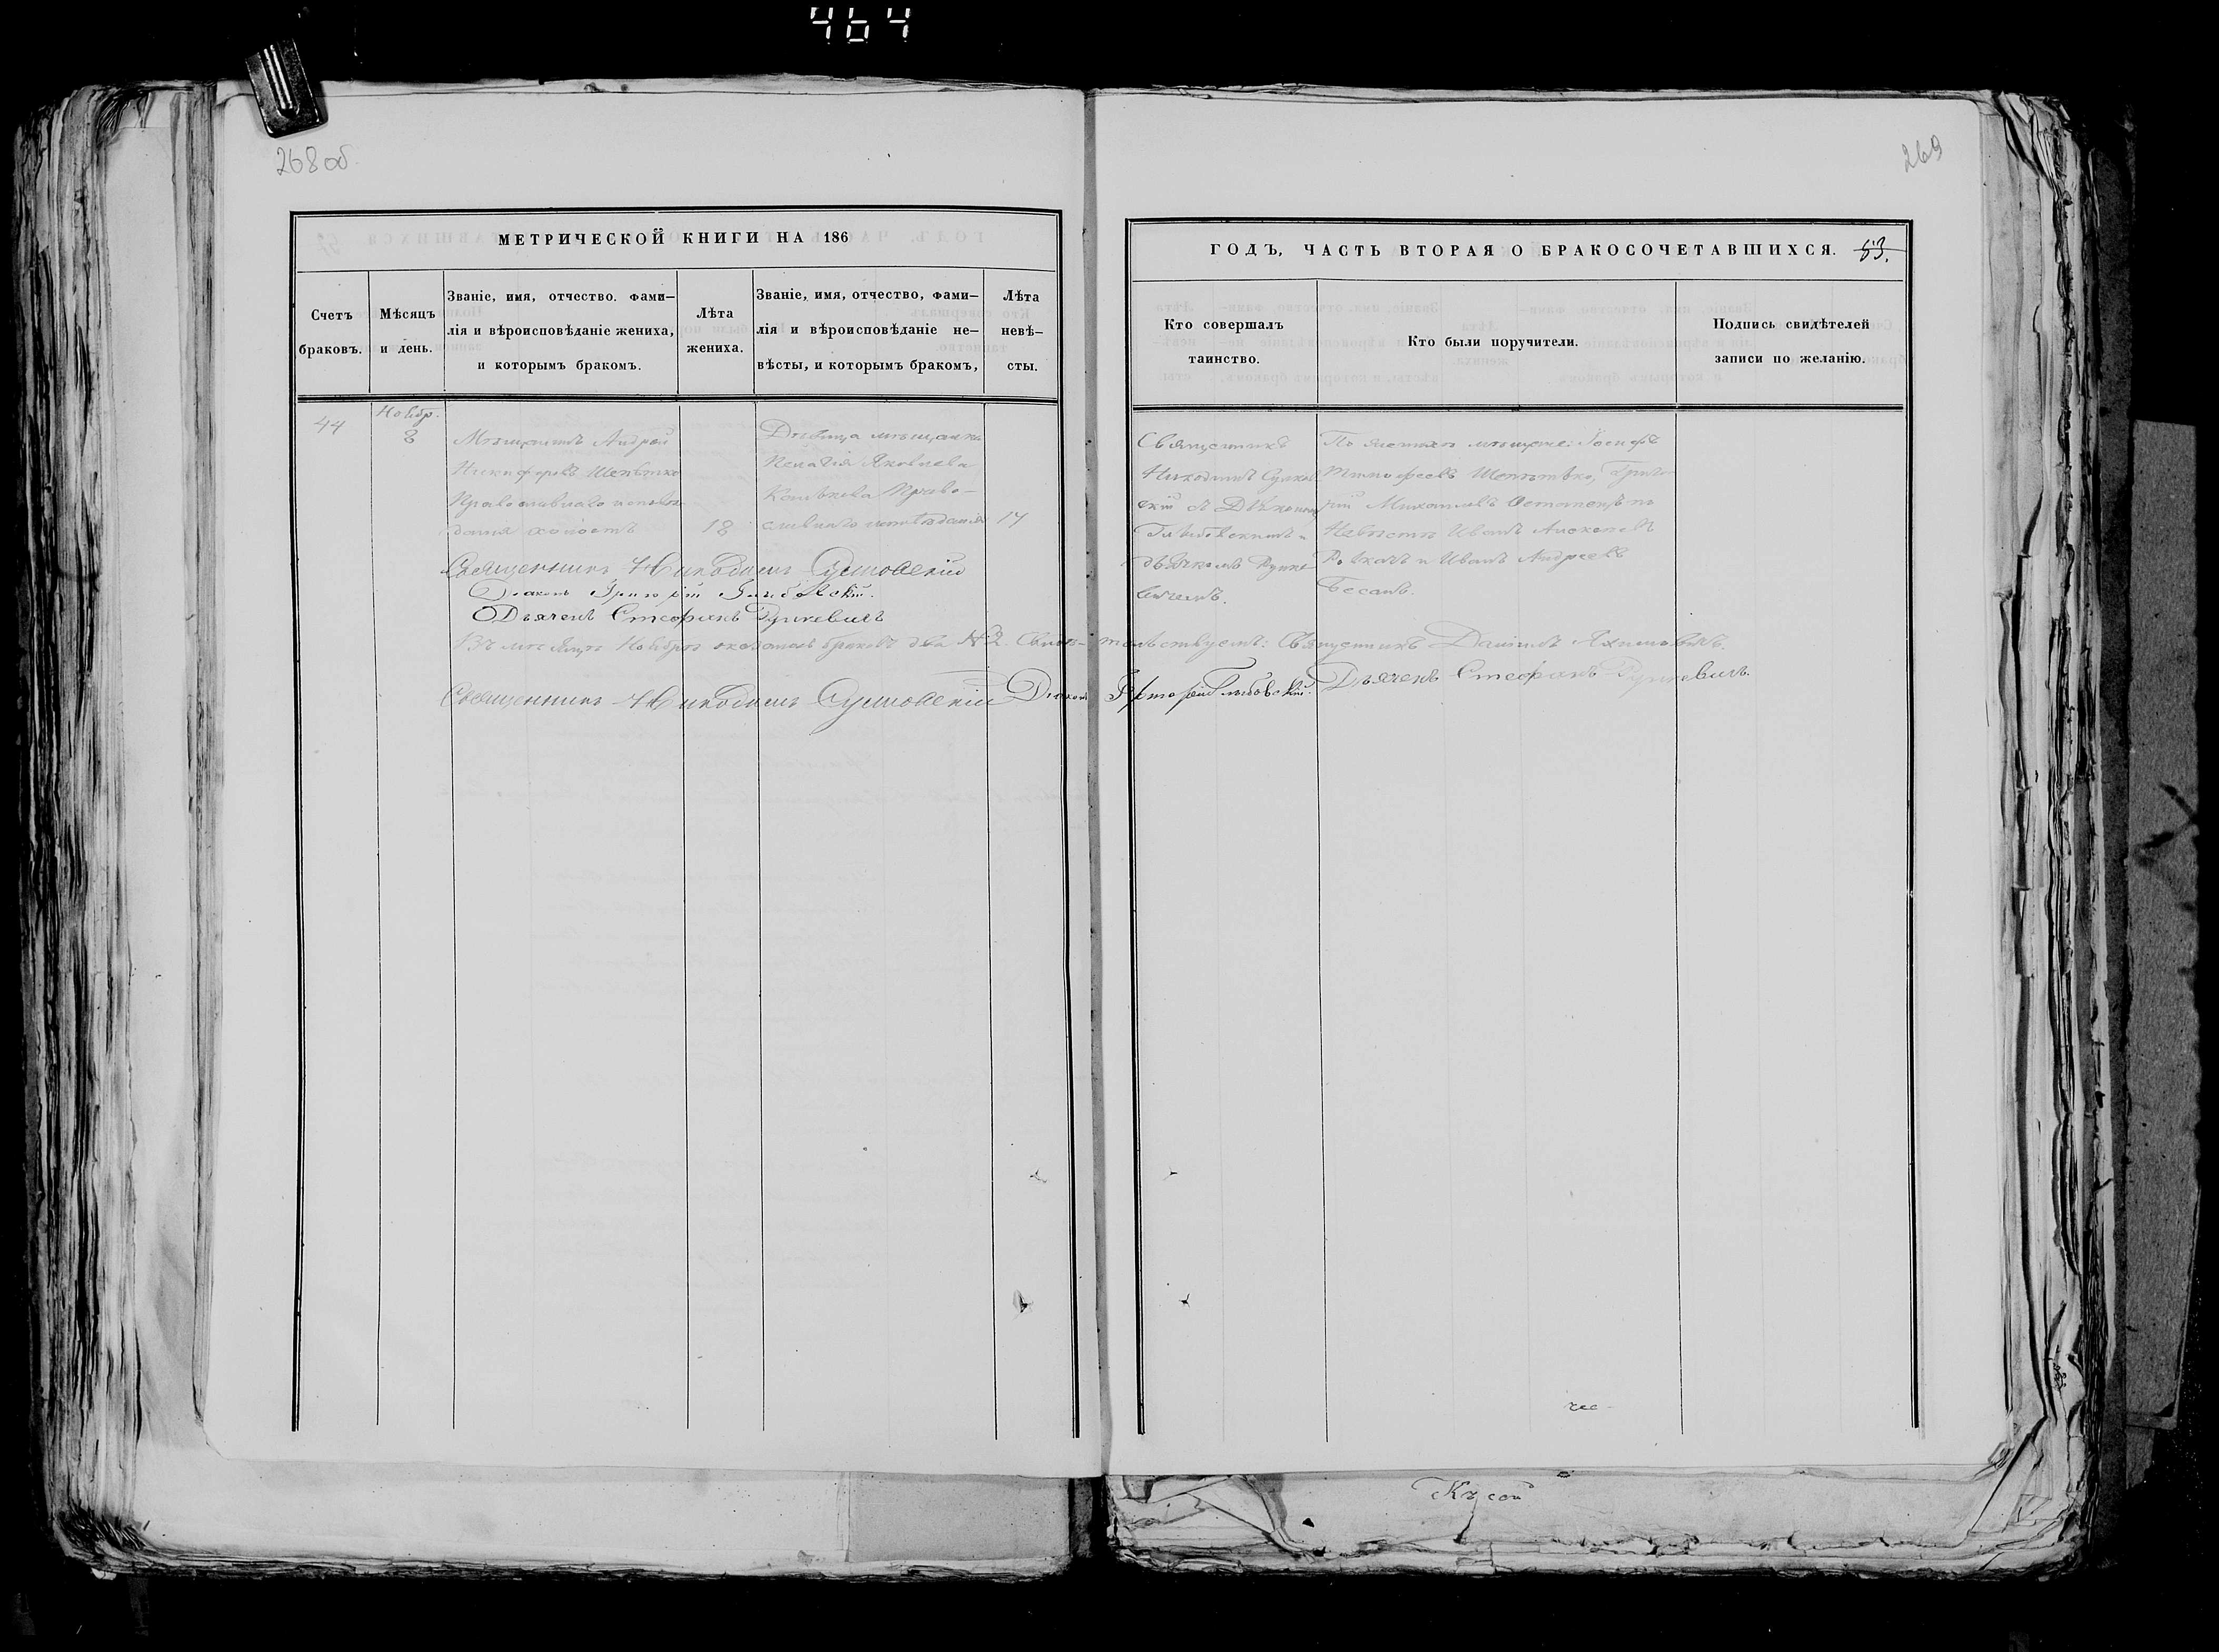 464
268 об.
269
МЕТРИЧЕСКОЙ КНИГИ НА 186
ГОДЪ, ЧАСТЬ ВТОРАЯ О БРАКОСОЧЕТАВШИХСЯ. 53.
Счетъ
браковъ.
Мѣсяцъ
и день.
Званіе, имя, отчество. фами-
лія и вѣроисповѣданіе жениха,
и которымъ бракомъ.
Лѣта
жениха.
Званіе, имя, отчество, фами-
лія и вѣроисповѣданіе не-
вѣсты, и которымъ бракомъ,
Лѣта
невѣ-
сты.
Кто совершалъ
таинство.
Кто были поручители.
Подпись свидѣтелей
записи по желанію.
44
Ноябр.
8
Мѣщанинъ Андрей
Никифоровъ
Православнаго исповѣ-
данія холостъ
18
Дѣвица мѣщанка
Пелагія Яковлева
Право-
славнаго исповѣданія
17
Священникъ
Никодимъ
скій съ
Глѣбовскимъ и
дьячкомъ Рупке-
вичемъ.
По женихѣ мѣщане: Іосифъ
Тимофеевъ Григо-
рій Михайловъ по
Невѣстѣ Иванъ
и Иванъ Андреевъ
Священникъ Никодимъ
Діаконъ Григорій Глѣбовскій.
Дьячекъ Стефанъ Рупкевичъ
Въ мѣсяцѣ Ноябрѣ браковъ два № 2. Свидѣ-тельствуемъ: Священникъ Даніилъ
Священникъ Никодимъ Діаконъ Григорій Глѣбовскій. Дьячекъ Стефанъ Рупкевичъ.